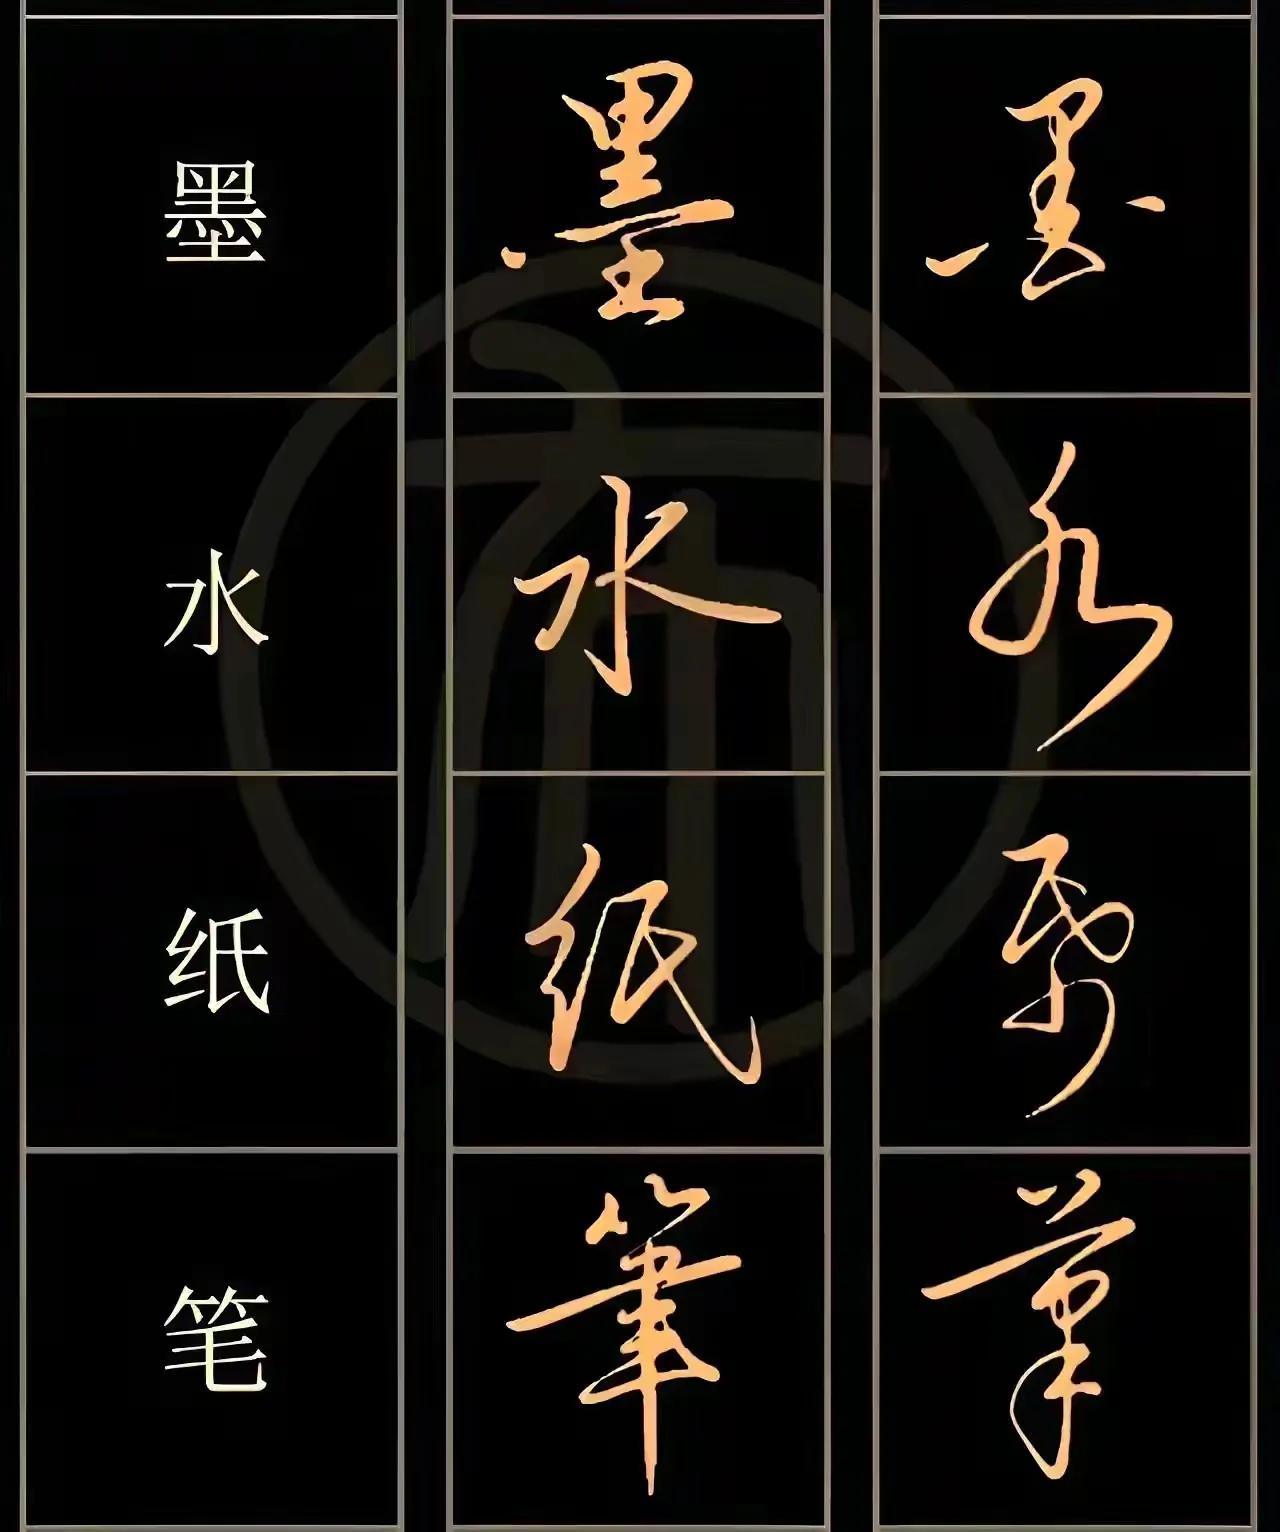 墨 墨 墨
水 水 水
纸 纸 帋
笔 筆 筆